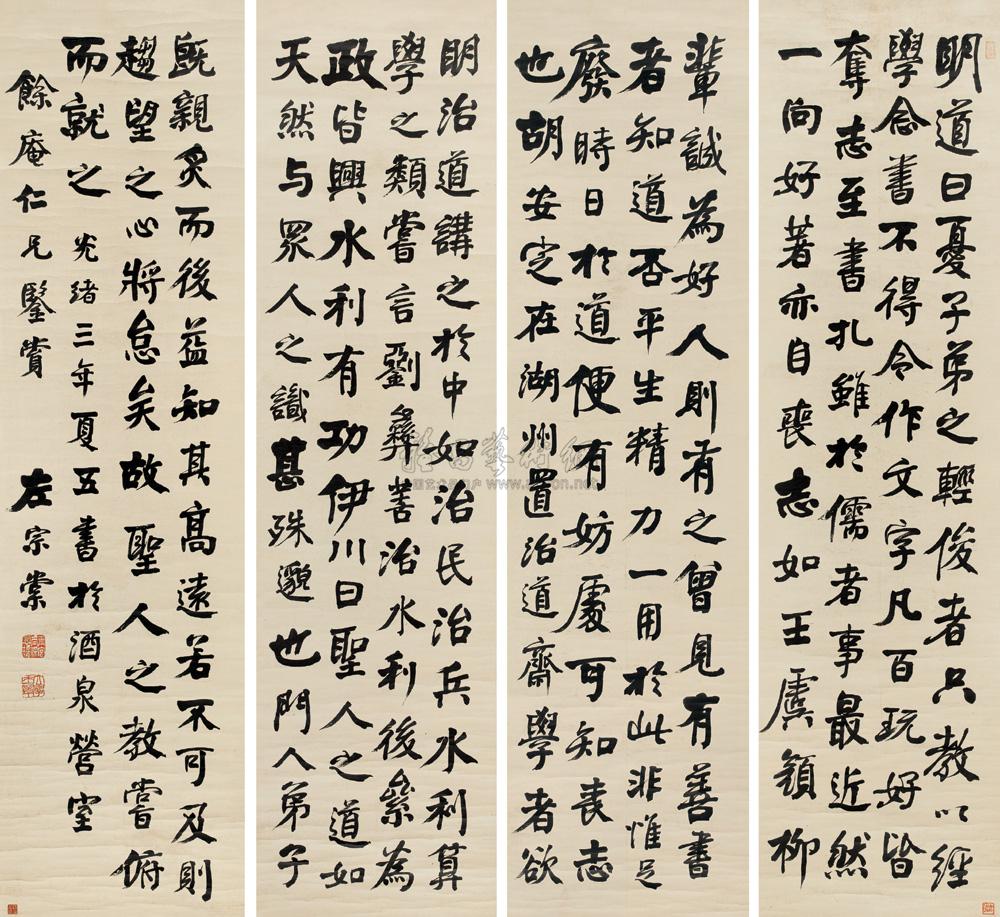 明道曰憂子弟之輕俊者只教以經
學念書不得令作文字凡百玩好皆
奪志至書札雖於儒者事最近然
一向好著亦自喪志如王虞顏柳
輩誠為好人則有之曾見有善書
者知道否平生精力一用於此非惟足
廢時日於道便有妨處可知喪志
也胡安定在湖州置治道齋學者欲
明治道講之於中如治民治兵水利算
學之類嘗言劉彝善治水利後累為
政皆興水利有功伊川曰聖人之道如
天然与眾人之識甚殊邈也門人弟子
既親炙而後益知其高遠若不可及則
趨望之心將怠矣故聖人之教嘗俯
而就之 光緒三年夏五書於酒泉營室
餘庵仁兄鑒賞 左宗棠